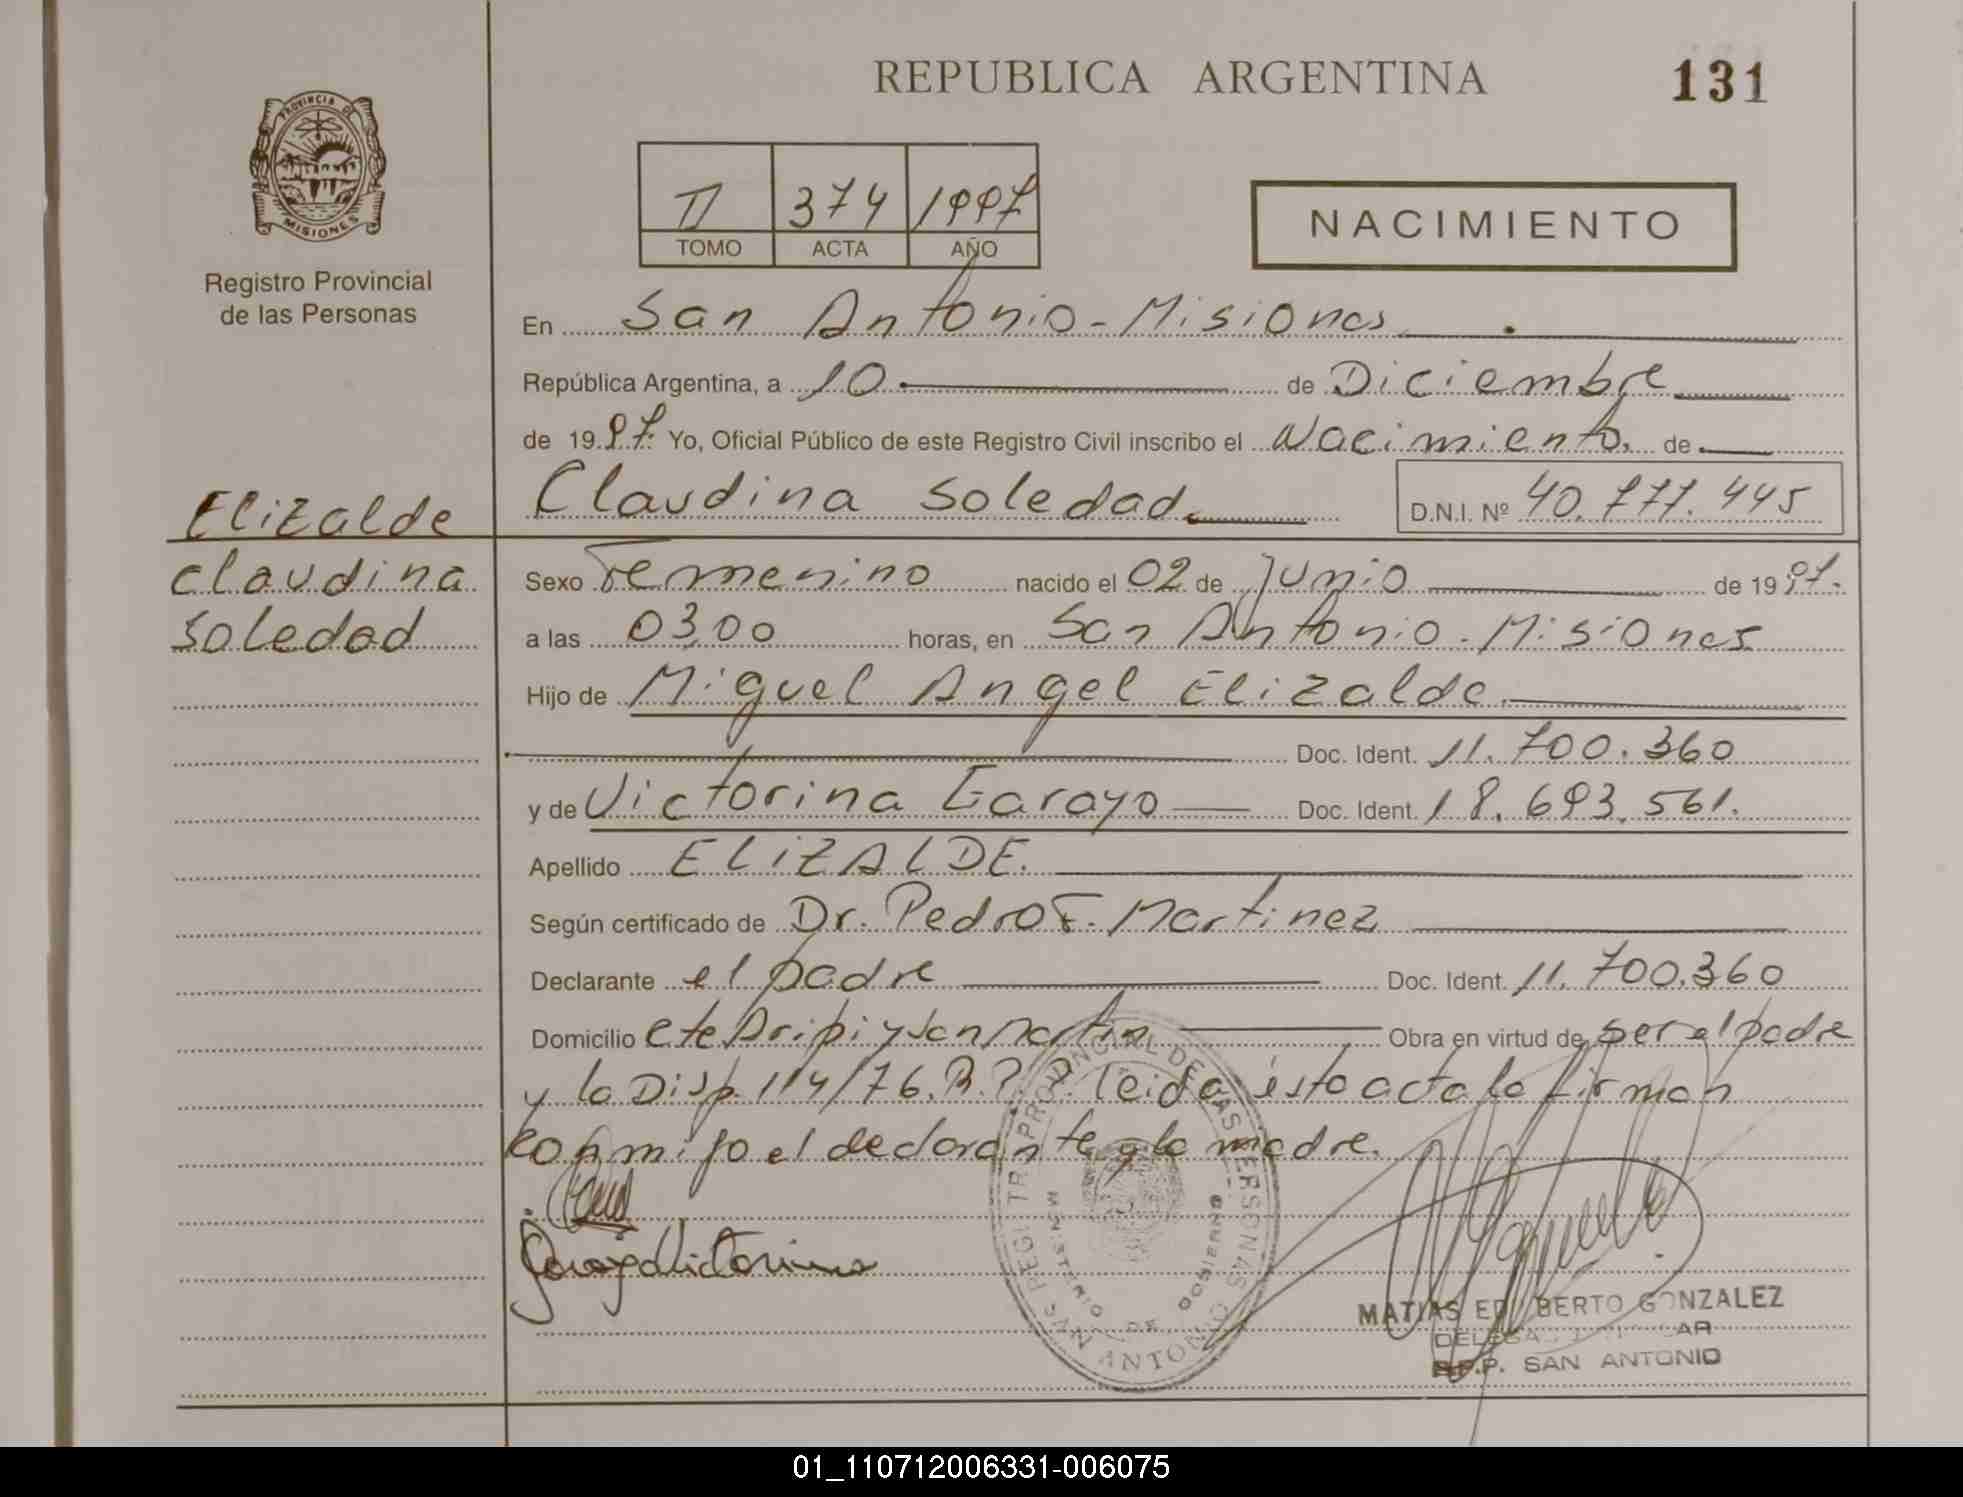 REPUBLICA ARGENTINA
131
PROVINCIA DE
MISIONES
Registro Provincial
de las Personas
II 374 1997
TOMO ACTA AÑO
NACIMIENTO
En San Antonio - Misiones
República Argentina, a 10 de Diciembre
de 1997. Yo, Oficial Público de este Registro Civil inscribo el Nacimiento. de
Claudina Soledad. D.N.I. Nº 40.777.445
Elizalde
Claudina
Soledad
Sexo Femenino nacido el 02 de Junio de 1997.
a las 03,00 horas, en San Antonio - Misiones
Hijo de Miguel Angel Elizalde.
Doc. Ident. 11.700.360
y de Victorina Garayo Doc. Ident. 18.693.561.
Apellido ELIZALDE.
Según certificado de Dr. Pedro F. Martinez
Declarante el padre Doc. Ident. 11.700.360
Domicilio Cte Aripi y San Martin Obra en virtud de ser el padre
y la Disp. 114/76.R.P.P. leida ésta acta la firman
conmigo el declarante y la madre.
Garayo Victorina
REGISTRO PROVINCIAL DE LAS PERSONAS
MINISTERIO DE GOBIERNO
SAN ANTONIO
MATIAS EDILBERTO GONZALEZ
R.P.P. SAN ANTONIO
01_110712006331-006075